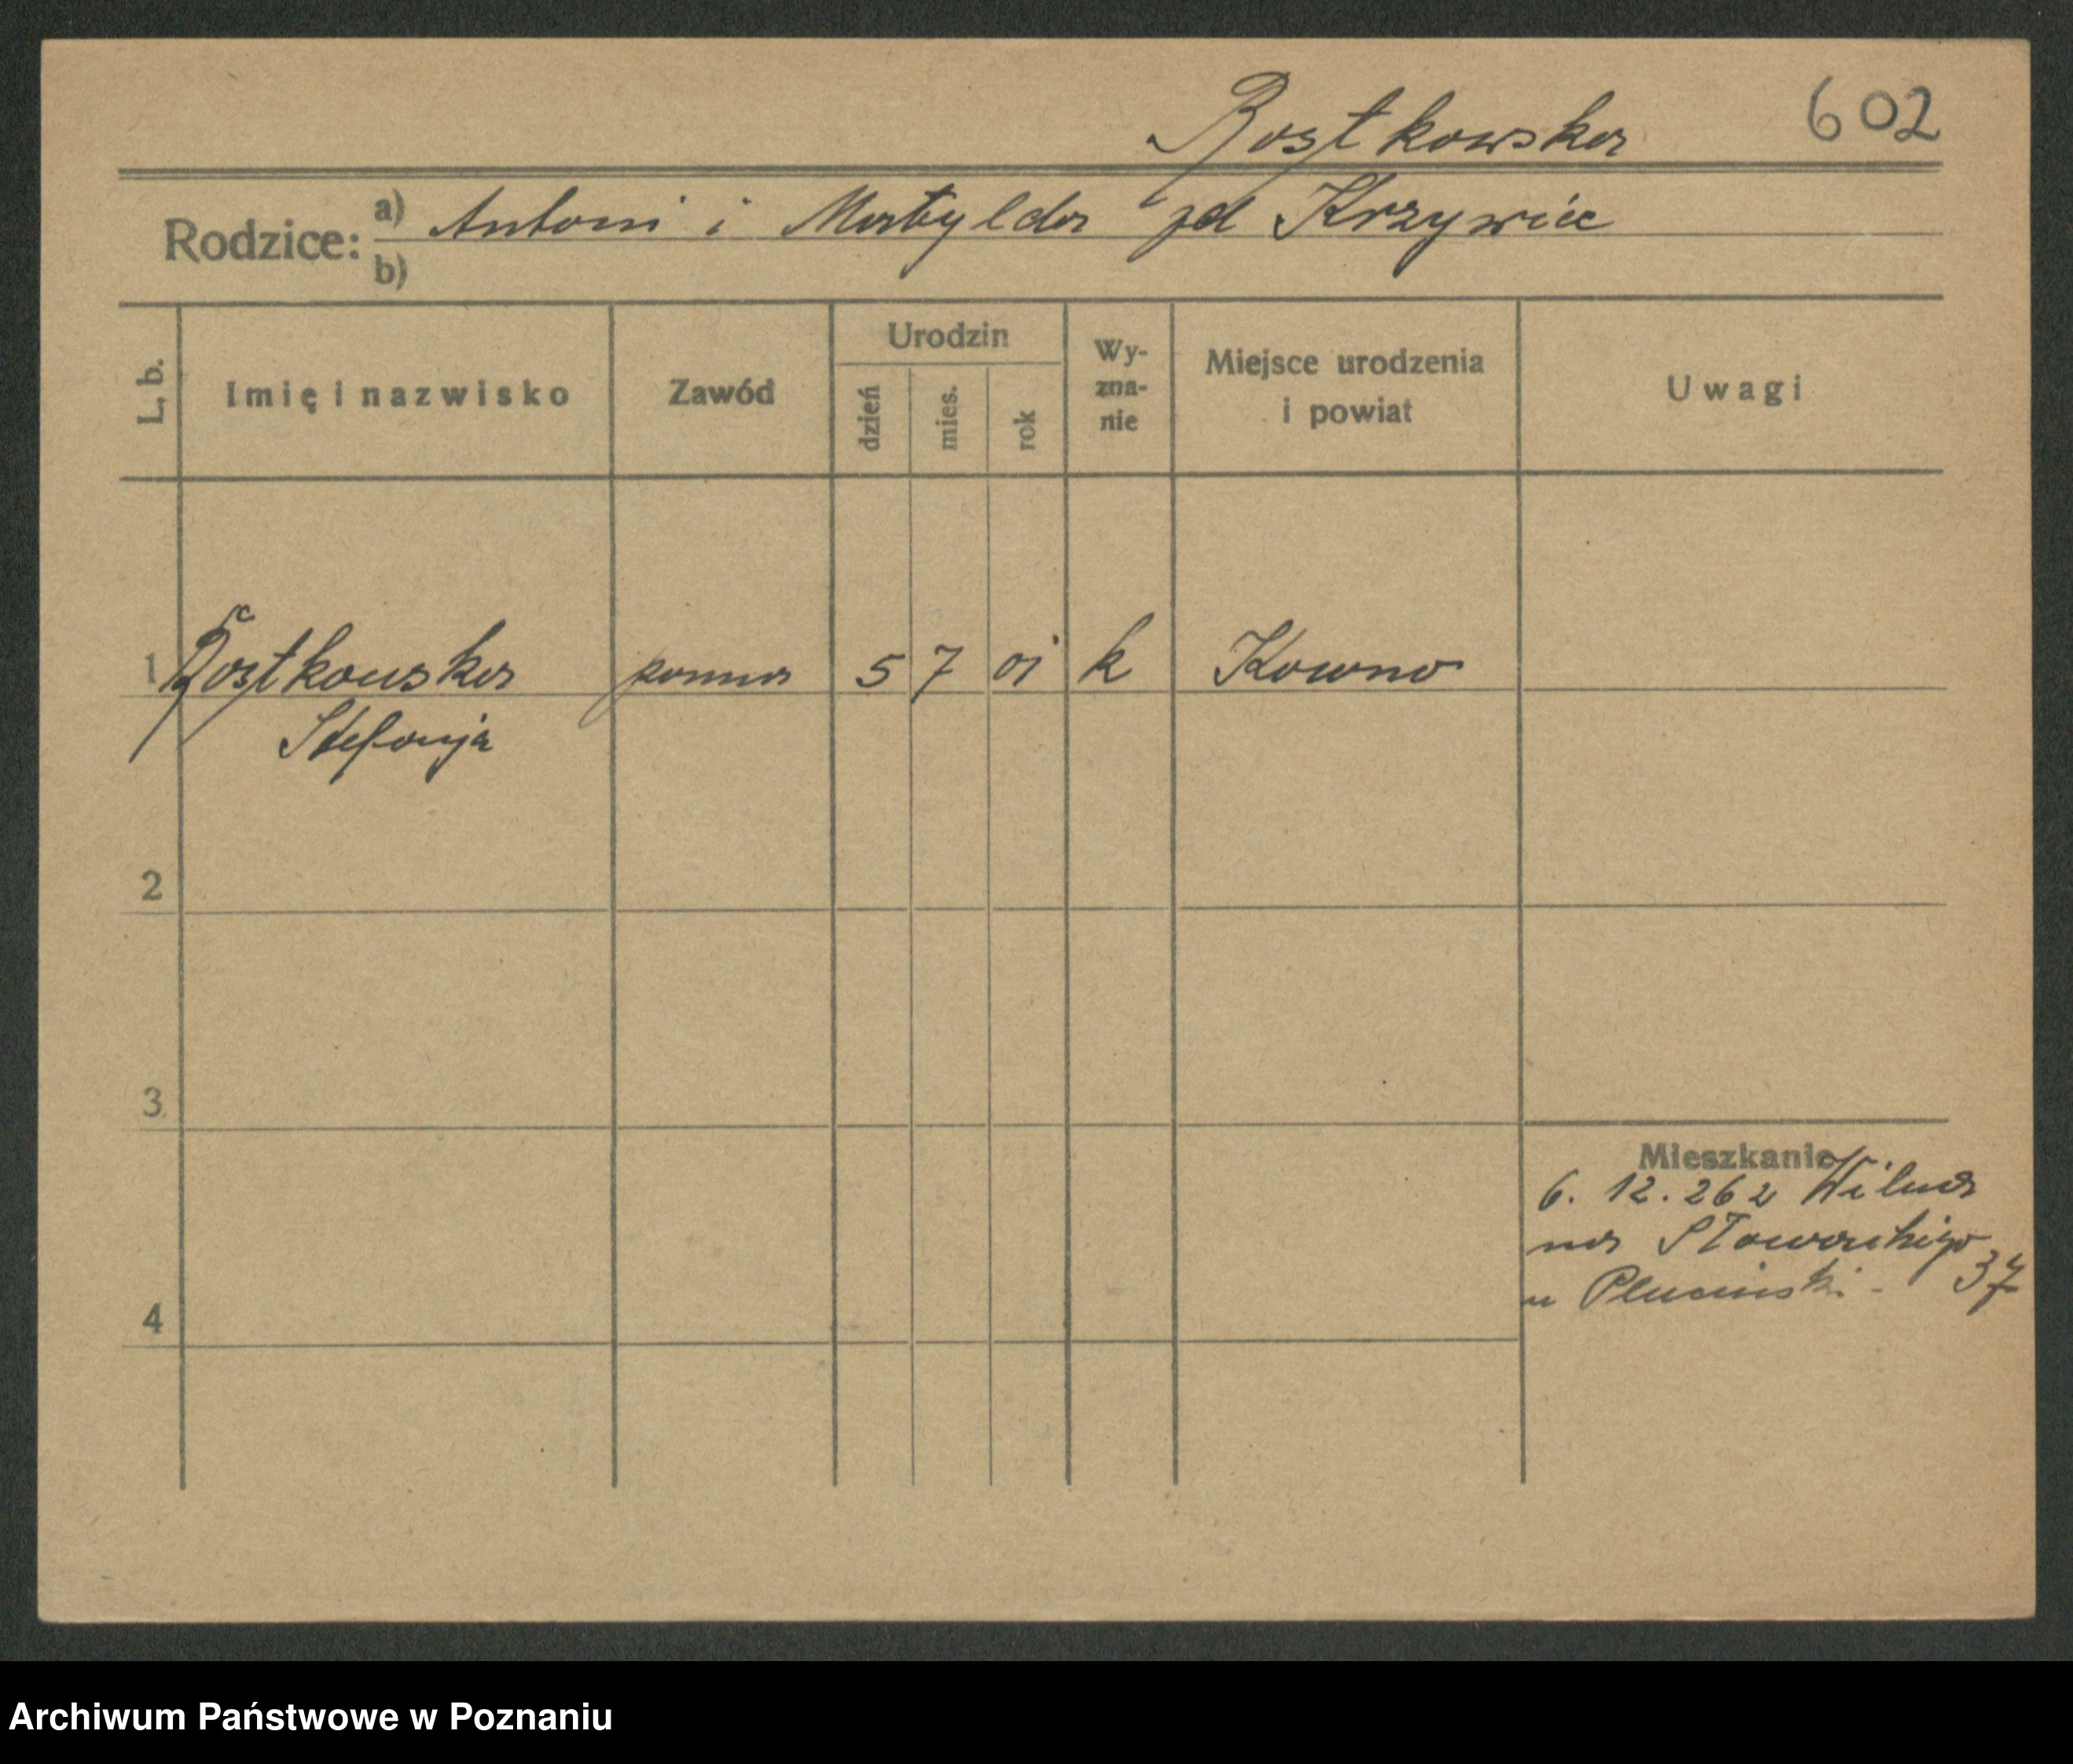 Rostkowska 602
Rodzice: a) Antoni i Matylda zd Krzywiec
b)
L. b. Imię i nazwisko Zawód Urodzin dzień mies. rok Wyznanie Miejsce urodzenia i powiat Uwagi
1 Rostkowska panna 5 7 01 k Kowno
Stefanja
2
3
Mieszkanie
6. 12. 26 z Wilna
na Słowackiego
37
4
Archiwum Państwowe w Poznaniu